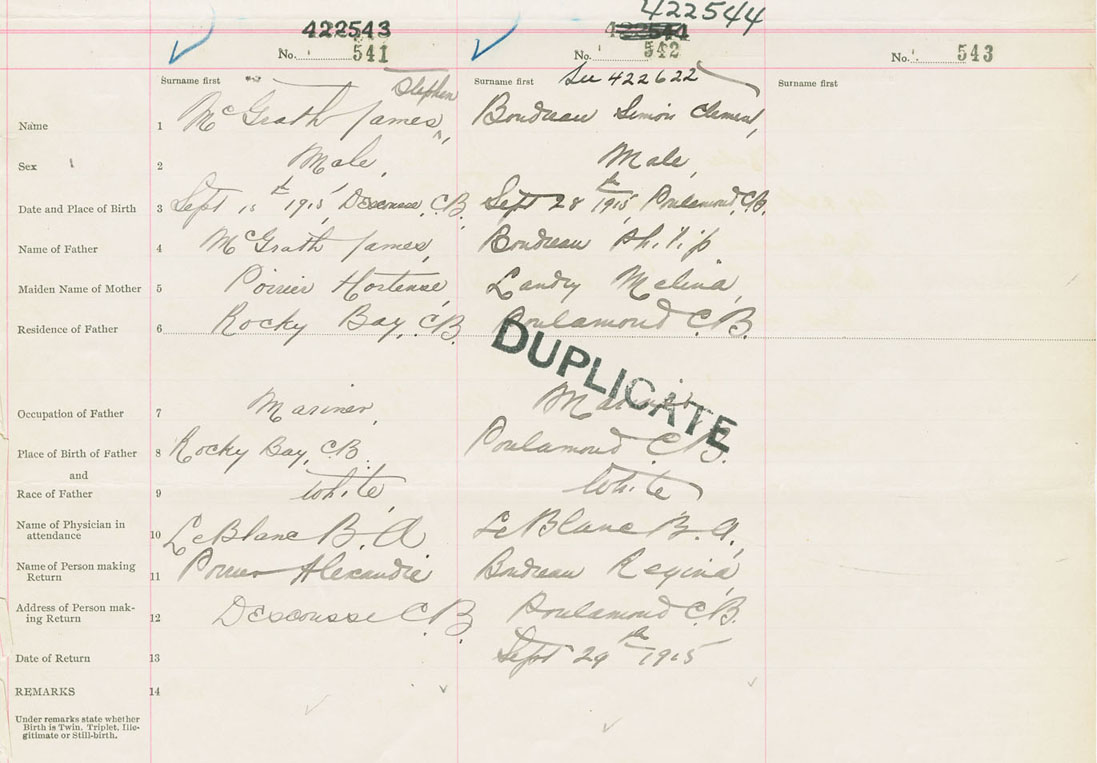 422543 422544
No. 541 No. 542 No. 543
Surname first Surname first See 422622 Surname first
Stephen
Name 1 McGrath James, Boudreau Simon Clement,
Sex 2 Male, Male,
Date and Place of Birth 3 Sept 15th 1915, Descousse, C.B. Sept 28th 1915, Poulamond, C.B.
Name of Father 4 McGrath James, Boudreau Philip
Maiden Name of Mother 5 Poirier Hortense, Landry Melina,
Residence of Father 6 Rocky Bay, C.B. Poulamond C.B.
DUPLICATE
Occupation of Father 7 Mariner, Mariner
Place of Birth of Father 8 Rocky Bay, C.B. Poulamond C.B.
and
Race of Father 9 White, White
Name of Physician in
attendance 10 LeBlanc B. A LeBlanc B. A,
Name of Person making
Return 11 Poirier Alexandre Boudreau Regina,
Address of Person mak-
ing Return 12 Descousse C.B. Poulamond C.B.
Date of Return 13 Sept 29th 1915
REMARKS 14
Under remarks state whether
Birth is Twin, Triplet, Ille-
gitimate or Still-birth.